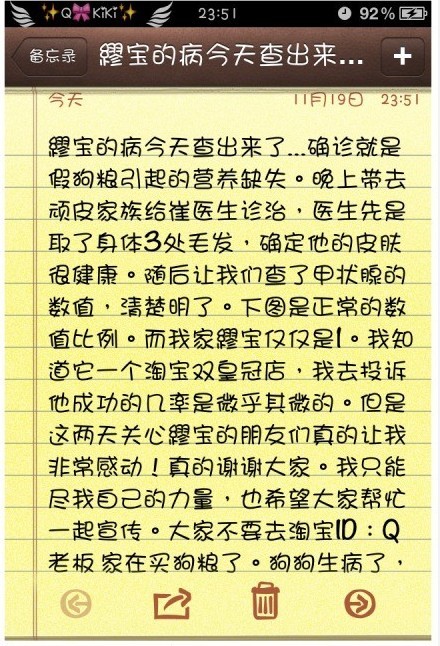 Q KiKi 23:51 92%
备忘录 繆宝的病今天查出来... +
今天 11月19日 23:51
繆宝的病今天查出来了...确诊就是
假狗粮引起的营养缺失。晚上带去
顽皮家族给崔医生诊治,医生先是
取了身体3处毛发,确定他的皮肤
很健康。随后让我们查了甲状腺的
数值,清楚明了。下图是正常的数
值比例。而我家繆宝仅仅是1。我知
道它一个淘宝双皇冠店,我去投诉
他成功的几率是微乎其微的。但是
这两天关心繆宝的朋友们真的让我
非常感动!真的谢谢大家。我只能
尽我自己的力量,也希望大家帮忙
一起宣传。大家不要去淘宝ID:Q
老板家在买狗粮了。狗狗生病了,